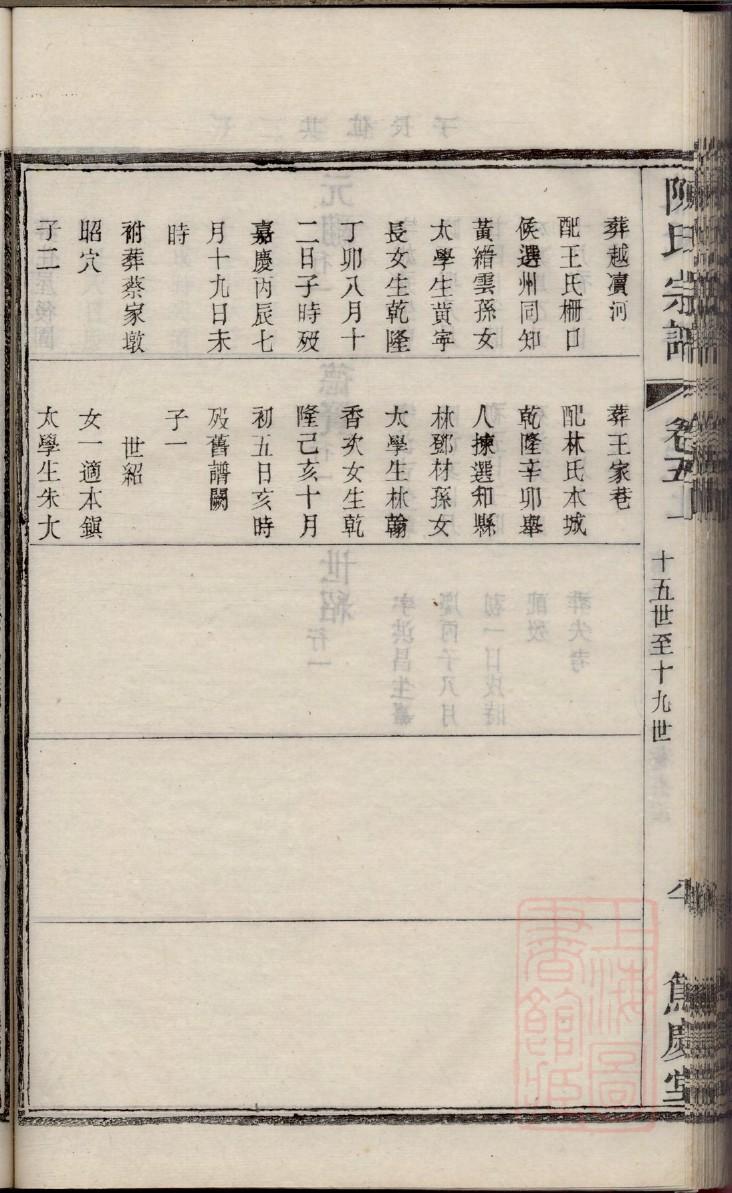 陳氏宗譜
卷五上
十五世至十九世
篤慶堂
葬越瀆河
配王氏柵口
候選州同知
黃縉雲孫女
太學生黃寧
長女生乾隆
丁卯八月十
二日子時歿
嘉慶丙辰七
月十九日未
時
祔葬蔡家墩
昭穴
子二
葬王家巷
配林氏本城
乾隆辛卯舉
人揀選知縣
林鄧材孫女
太學生林翰
香次女生乾
隆己亥十月
初五日亥時
歿舊譜闕
子一
世紹
女一適本鎭
太學生朱大
上海圖
書館藏